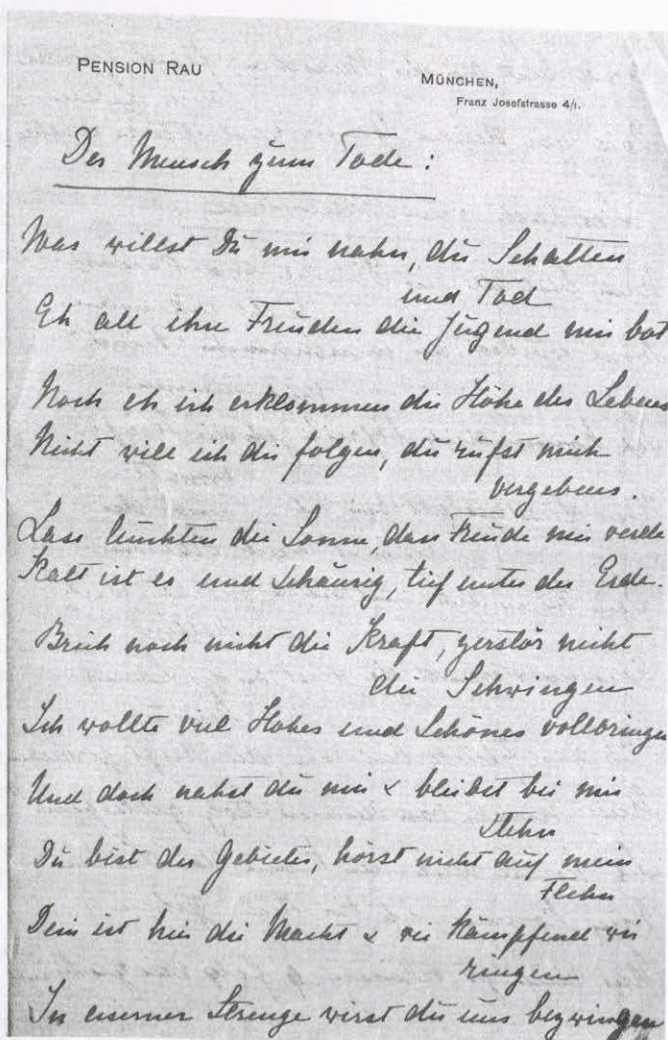 PENSION RAU
MÜNCHEN,
Franz Josefstrasse 4/I.
Der Mensch zum Tode:
Was willst Du mir nahn, du Schatten
und Tod
Eh all ihre Freuden die Jugend mir bot
Noch eh ich erklommen die Höhe des Lebens
Nicht will ich dir folgen, du rufst mich
vergebens.
Lass leuchten die Sonne, dass Freude mir werde
Kalt ist es und schaurig, tief unter der Erde.
Brich noch nicht die Kraft, zerstör nicht
die Schwingen
Ich wollte viel Hohes und Schönes vollbringen
Und doch nahst du mir & bleibst bei mir
stehn
Du bist der Gebieter, hörst nicht auf mein
Flehn
Dein ist hier die Macht & wie kämpfend wir
ringen
In eiserner Strenge wirst du uns bezwingen